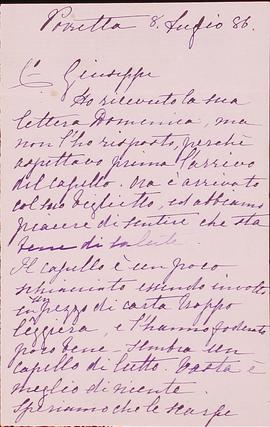 Porretta 8. Luglio 86.
Cº Giuseppe
Ho ricevuto la sua
lettera Domenica, ma
non l'ho risposto, perchè
aspettavo prima l'arrivo
del capello. Ora è arrivato
col suo biglietto, ed abbiamo
piacere di sentire che sta
bene di salute.
Il capello è un poco
schiacciato essendo involto
in un pezzo di carta troppo
leggiera, e l'hanno foderato
poco bene. Sembra un
capello di lutto. Basta è
meglio di niente.
Speriamo che le scarpe